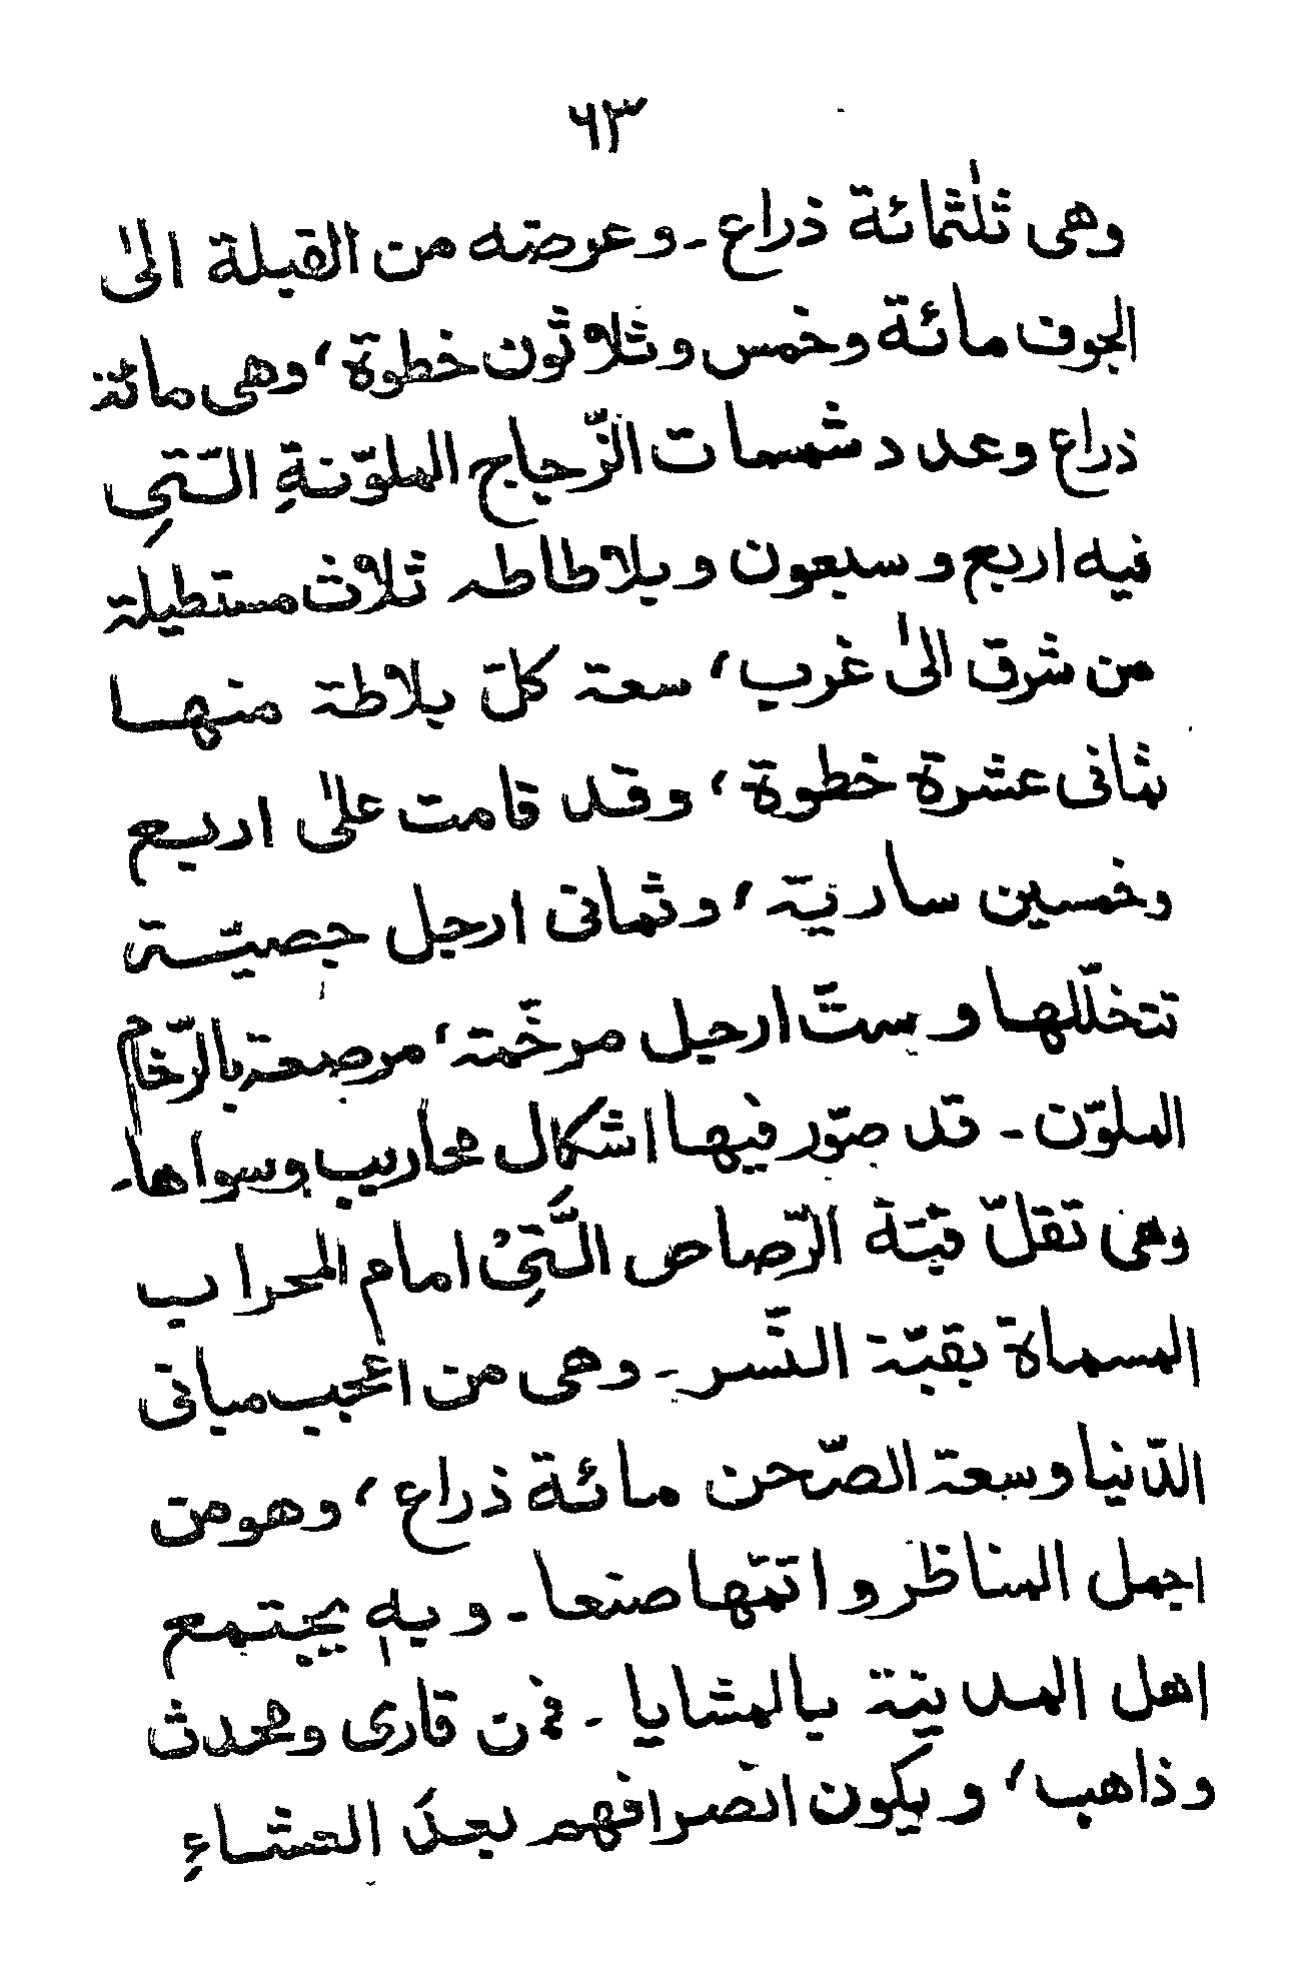 ٦٣
وهى ثلٰثمائة ذراع ـ وعرضه من القبلة الىٰ
الجوف مائة وخمس وثلاثون خطوة، وهى مائة
ذراع وعدد شمسات الزّجاج الملوّنةِ الّتىِ
فيه اربع وسبعون وبلاطاطه ثلاث مستطيلة
من شرق الىٰ غرب، سعة كلّ بلاطة منها
ثمانى عشرة خطوة، وقد قامت علىٰ اربع
وخمسين ساريّة، وثمانى ارجل جصيّة
تتخلّلها وستّ ارجل مرخّمة، مرصعة بالرّخام
الملوّن ـ قد صوّر فيها اشكال محاريب وسواها ـ
وهى تقلّ قبّة الرّصاص الَّتىِْ امام المحراب
المسماة بقبّة النّسر ـ وهى من اعجب مبانى
الدّنيا وسعة الصّحن مائة ذراع، وهو من
اجمل المناظر واتمّها صنعا ـ وبهٖ يجتمع
اهل المدينة بالمشايا ـ فمن قارى ومحدث
وذاهب، ويكون انصرافهم بعدَ العشاءِ